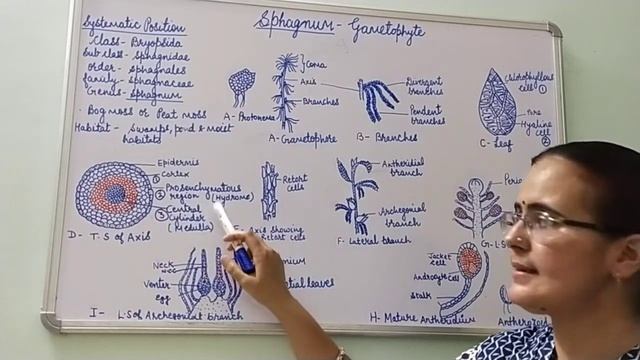 Sphagnum - Gametophyte
Systematic Position
Class - Bryopsida
Sub class - Sphagnidae
order - Sphagnales
family - Sphagnaceae
Genus - Sphagnum
Bog moss or Peat moss
Habitat - Swamps, pond & moist
habitats
A - Protonema
Coma
Axis
Branches
A - Gametophore
Divergent
branches
Pendent
branches
B - Branches
Chlorophyllous
cell ①
Pore
Hyaline
cell ②
C - Leaf
Epidermis
① Cortex
② Prosenchymatous
region (Hydrome)
③ Central
Cylinder
(Medulla)
D - T.S of Axis
Retort
cells
Axis showing
retort cells
Antheridial
branch
Archegonial
branch
F - Lateral branch
G - L.S
Neck
Venter
egg
leaves
I - L.S of Archegonial branch
Jacket
cell
Androcyte
cell
Stalk
H - Mature Antheridium